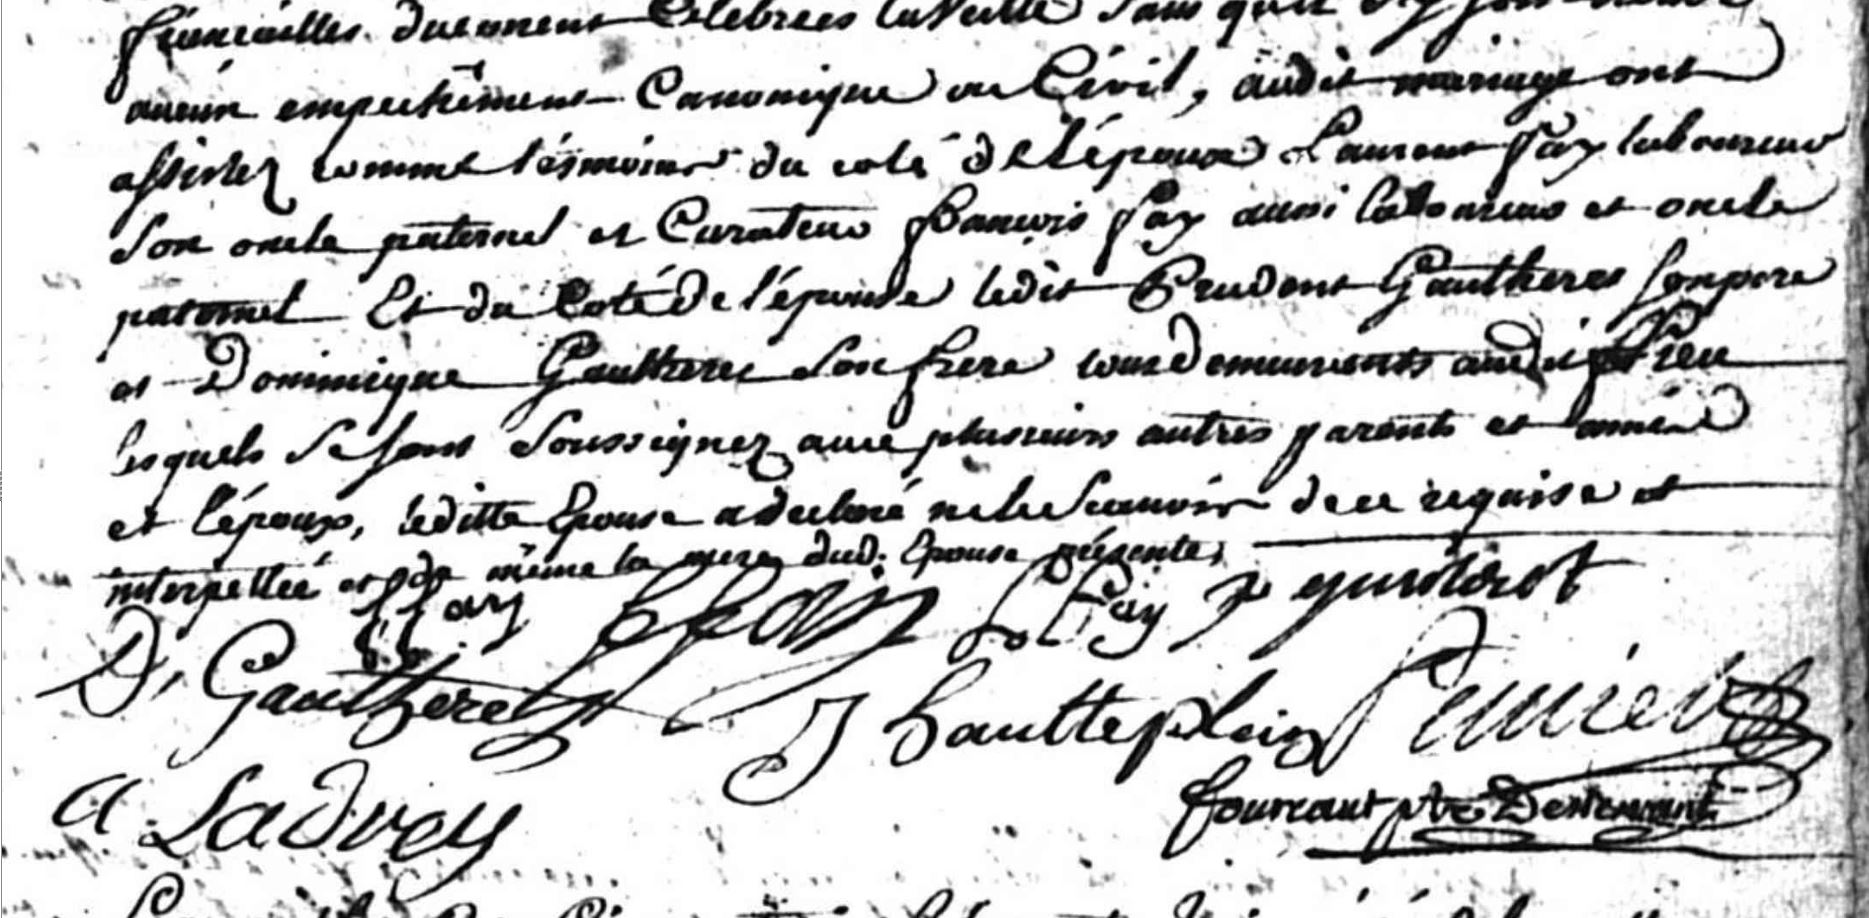 fiancailles duement Celebrées la veille sans qu'il
aucun empechement Canonique ou Civil, audit mariage ont
assistez comme tesmoins du coté de l'époux Laurent Fay laboureur
son oncle paternel et Curateur francois fay aussi laboureur et oncle
paternel Et du Coté de l'épouse ledit Prudent Gautheret son pere
et Dominique Gautheret son frere tous demeurants audit lieu
lesquels se sont soussignez avec plusieurs autres parents et amis
et l'époux, leditte Epouse a declaré ne le scauoir de ce requise et
interpellée et de même la mere dud. Epouse présente,
fay L fay P gautherot
D, Gautheret J hautteplain
a Ladrey fourcaut ptre Desservant